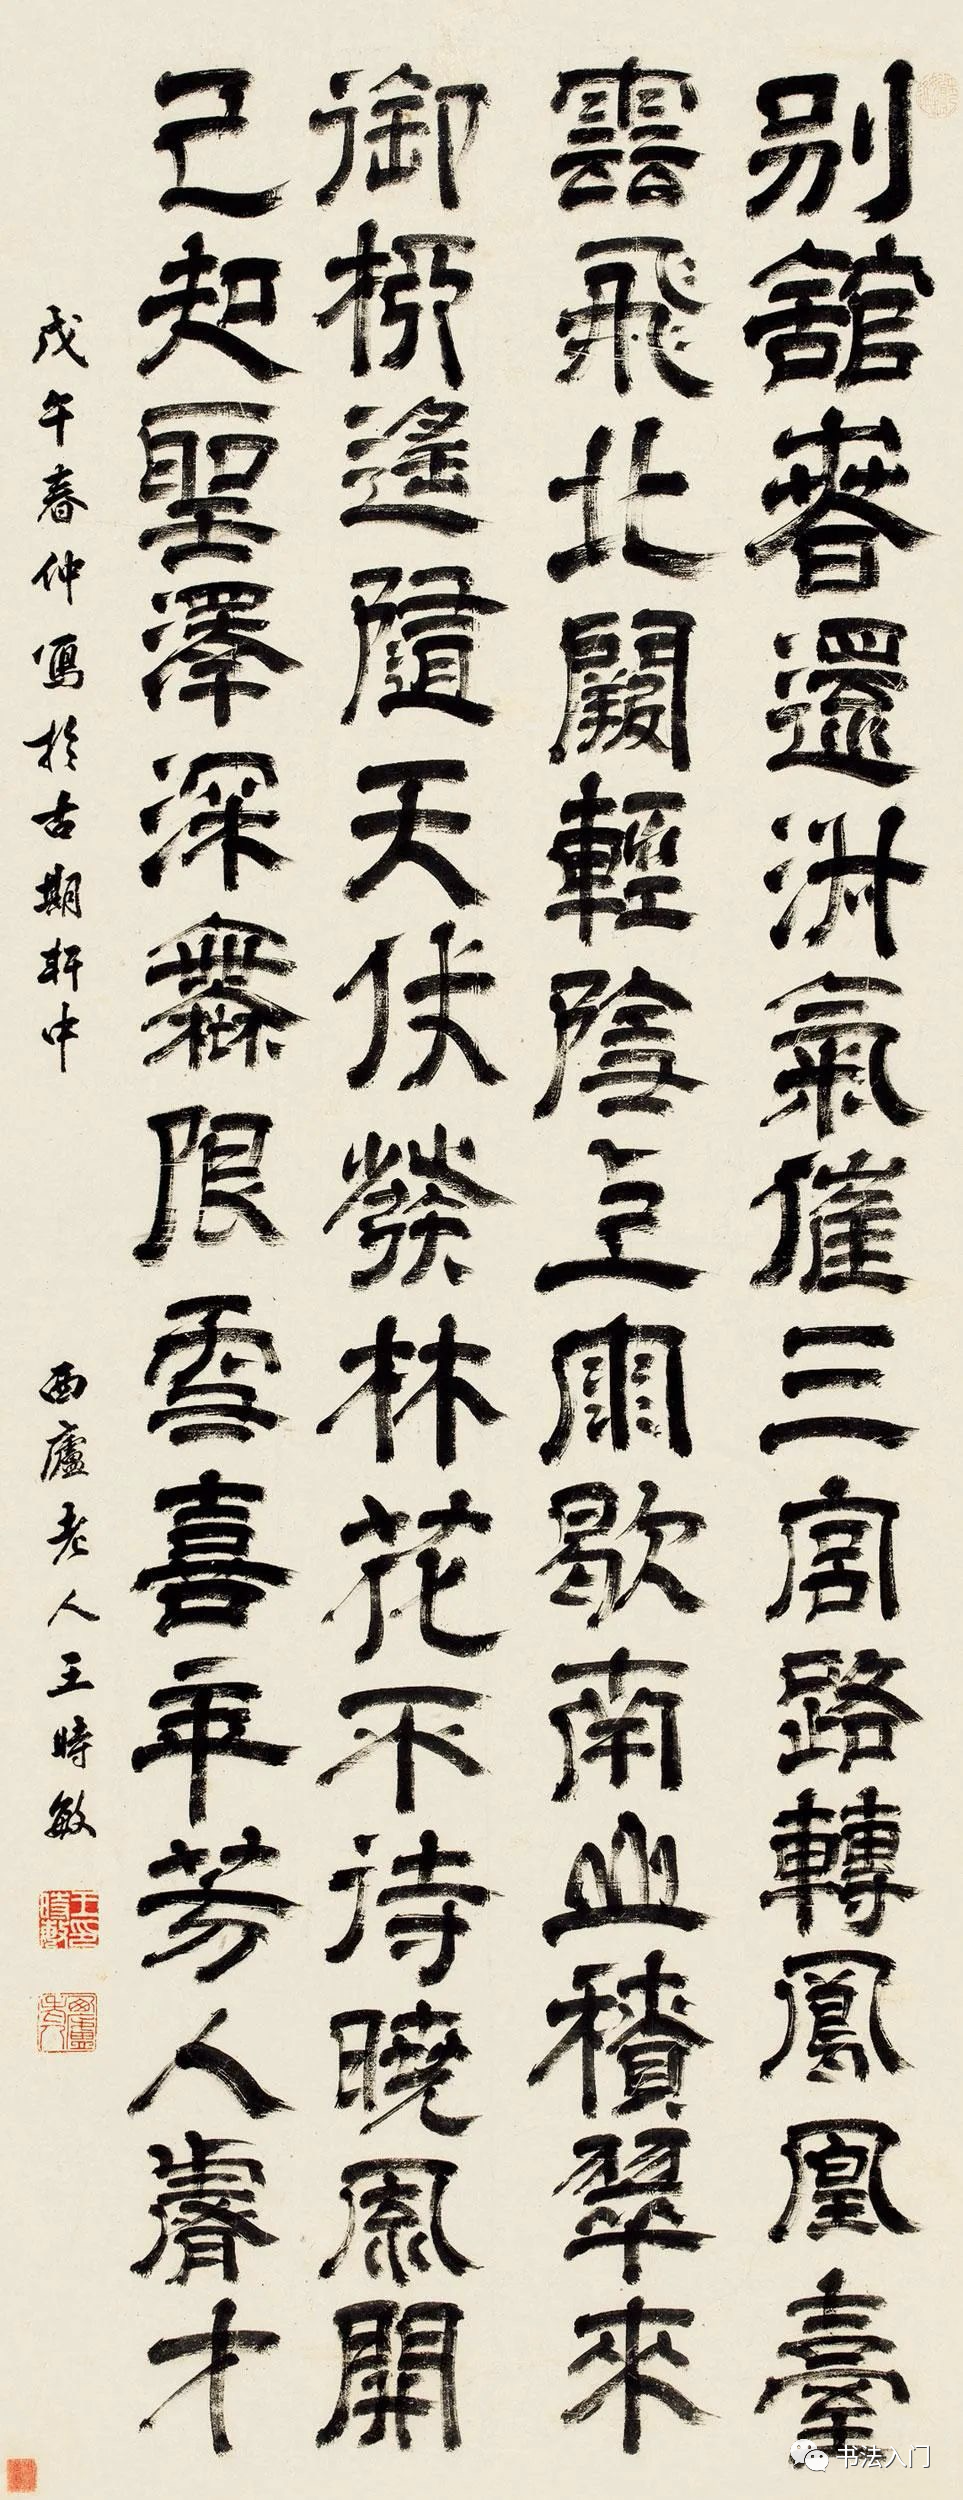 別舘春還淑氣催三宮路轉鳳凰臺
雲飛北闕輕陰雨歇南山積翠來
御柳遙隨天仗發林花不待曉風開
已知聖澤深無限雪喜年芳入睿才
戊午春仲寫於古期軒中 西廬老人王時敏
王時敏印
西廬老人
书法入门